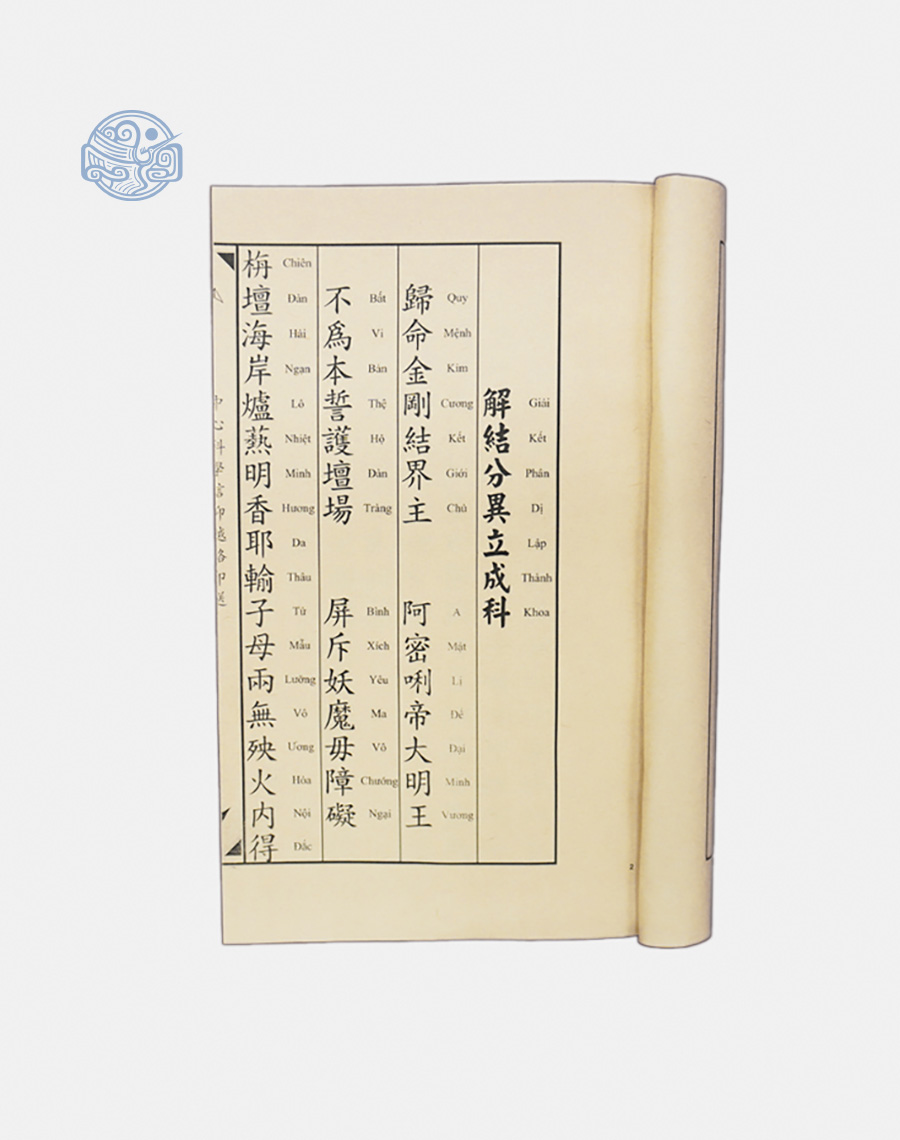 解結分異立成科
Giải Kết Phân Dị Lập Thành Khoa
歸命金剛結界主 阿密唎帝大明王
Quy Mệnh Kim Cương Kết Giới Chủ A Mật Lị Đế Đại Minh Vương
不爲本誓護壇場 屏斥妖魔毋障礙
Bất Vi Bản Thệ Hộ Đàn Tràng Bình Xích Yêu Ma Vô Chướng Ngại
栴壇海岸爐爇明香耶輸子母兩無殃火内得
Chiên Đàn Hải Ngạn Lô Nhiệt Minh Hương Da Thâu Tử Mẫu Lưỡng Vô Ương Hỏa Nội Đắc
2